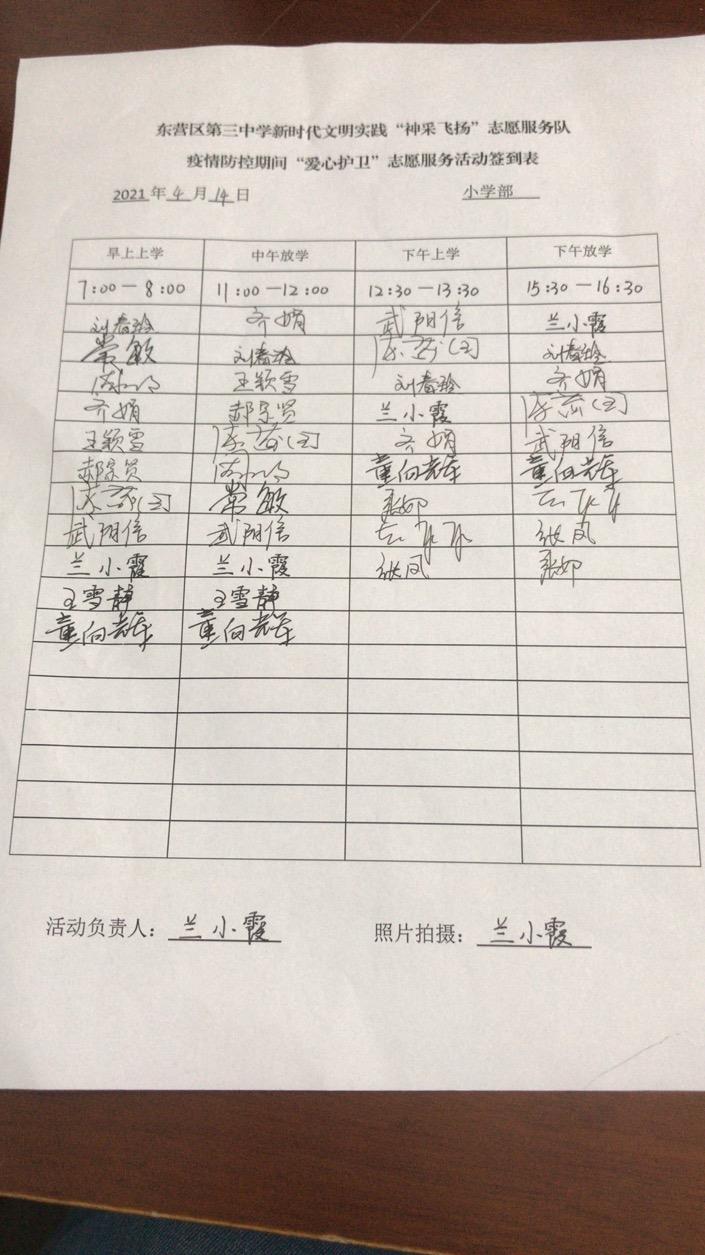 东营区第三中学新时代文明实践“神采飞扬”志愿服务队
疫情防控期间“爱心护卫”志愿服务活动签到表
2021年4月14日 小学部
早上上学 中午放学 下午上学 下午放学
7:00—8:00 11:00—12:00 12:30—13:30 15:30—16:30
刘春玲 齐娟 武阳信 兰小霞
常敏 刘春玲 刘春玲
王颖雪 刘春玲 齐娟
齐娟 郝宗贤 兰小霞
王颖雪 齐娟 武阳信
郝宗贤 董向荣 董向荣
常敏
武阳信 武阳信 张凤
兰小霞 兰小霞 张凤
王雪静 王雪静
董向荣 董向荣
活动负责人：兰小霞 照片拍摄：兰小霞